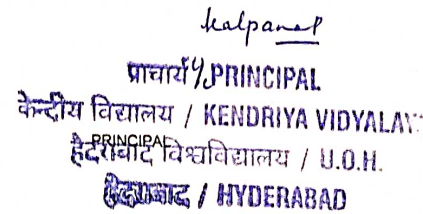 kalpana
प्राचार्य / PRINCIPAL
केन्द्रीय विद्यालय / KENDRIYA VIDYALAY
PRINCIPAL
हैदराबाद विश्वविद्यालय / U.O.H.
हैदराबाद / HYDERABAD